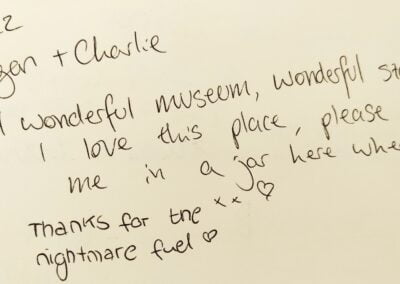 + Charlie
wonderful museum, wonderful
I love this place, please
me in a jar here
Thanks for the xx ♡
nightmare fuel ♡